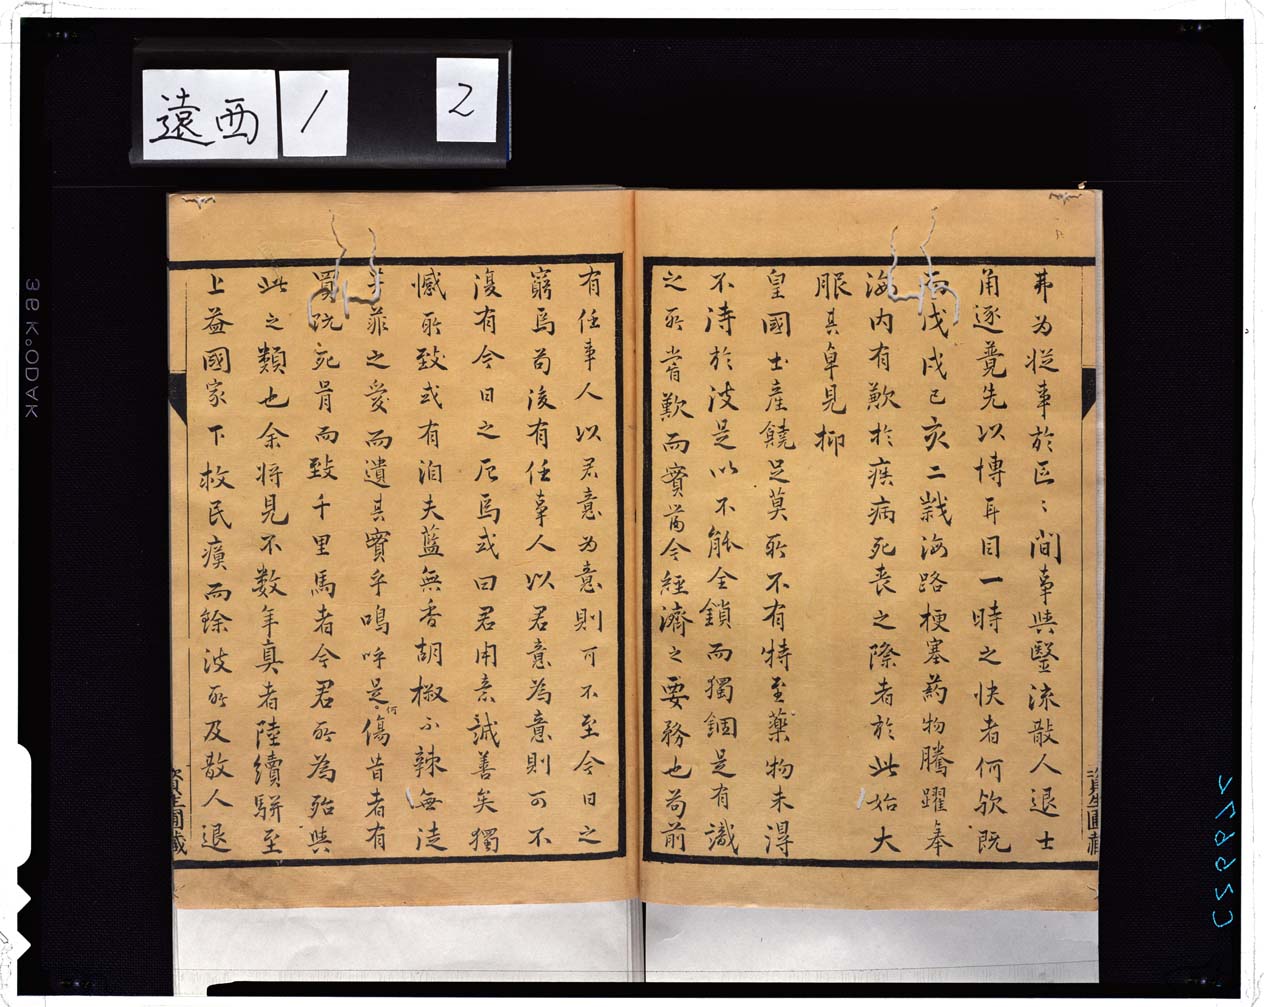 遠西
1
2
弗為從事於区〻間事與醫流散人退士
角逐競先以博耳目一時之快者何歟既
而戊戌己亥二歳海路梗塞藥物騰躍奉
海内有歎於疾病死喪之際者於此始大
服其卓見抑
皇國土産饒足莫所不有特至藥物未得
不洊於波是以不能全鎖而獨錮是有識
之所嘗歎而實當今經濟之要務也苟前
有任事人以君意為意則可不至今日之
窮焉苟後有任事人以君意為意則可不
復有今日之厄焉或曰君用意誠善矣獨
憾所致或有泊夫藍無香胡椒不辣無徒
菲之愛而遺其實乎嗚呼是何傷昔者有
買死骨而致千里馬者今君所為殆與
此之類也余将見不数年真者陸續駢至
上益國家下救民瘼而餘波所及散人退
資生圃藏
資生圃藏
KODAK